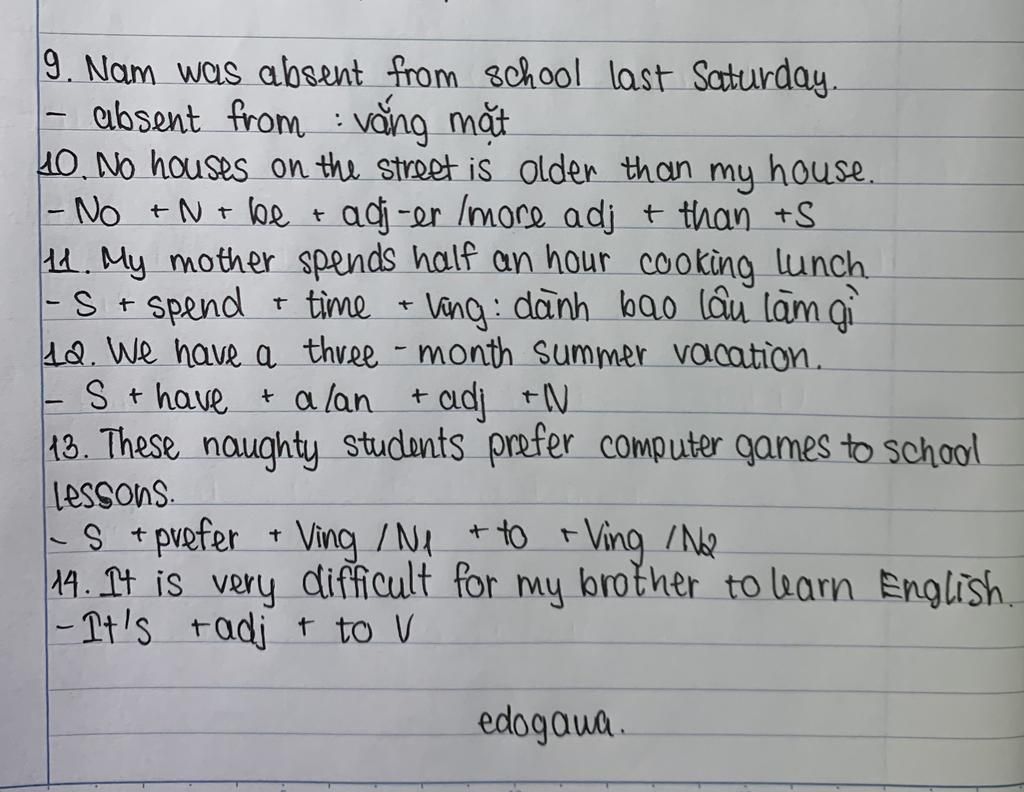 9. Nam was absent from school last Saturday.
- absent from : vắng mặt
10. No houses on the street is older than my house.
- No + N + be + adj-er /more adj + than + S
11. My mother spends half an hour cooking lunch.
- S + spend + time + Ving : dành bao lâu làm gì
12. We have a three - month summer vacation.
- S + have + a/an + adj + N
13. These naughty students prefer computer games to school
lessons.
- S + prefer + Ving / N1 + to + Ving / N2
14. It is very difficult for my brother to learn English.
- It's + adj + to V
edogawa.